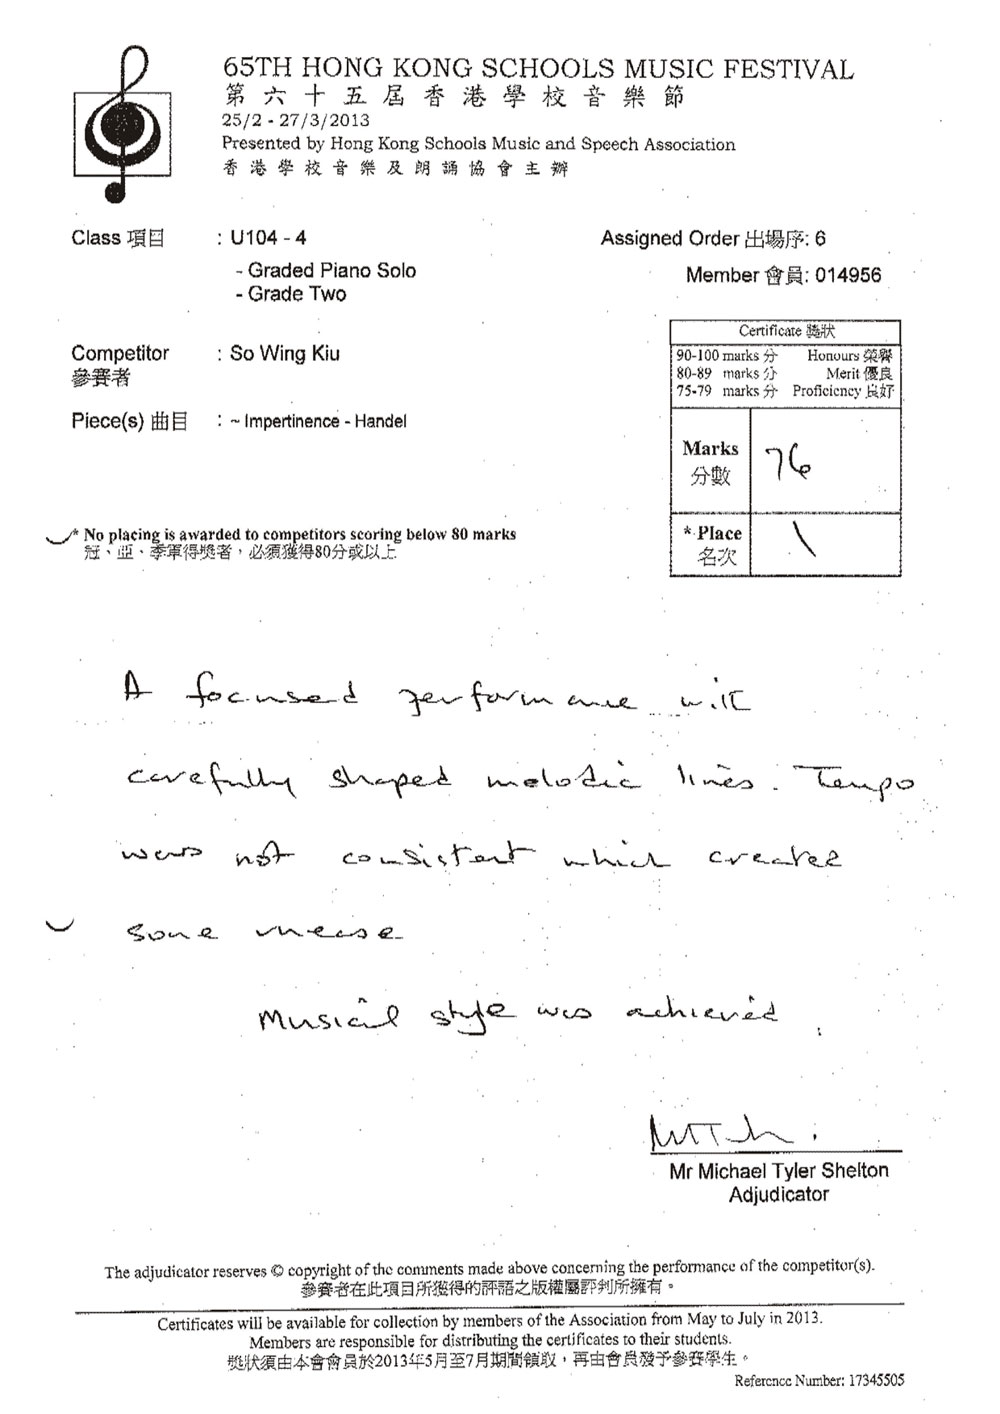 65TH HONG KONG SCHOOLS MUSIC FESTIVAL
第六十五屆香港學校音樂節
25/2 - 27/3/2013
Presented by Hong Kong Schools Music and Speech Association
香港學校音樂及朗誦協會主辦
Class 項目 : U104 - 4
- Graded Piano Solo
- Grade Two
Assigned Order 出場序: 6
Member 會員: 014956
Competitor : So Wing Kiu
參賽者
Piece(s) 曲目 : ~ Impertinence - Handel
Certificate 獎狀
90-100 marks 分 Honours 榮譽
80-89 marks 分 Merit 優良
75-79 marks 分 Proficiency 良好
Marks 76
分數
* Place \
名次
* No placing is awarded to competitors scoring below 80 marks
冠、亞、季軍得獎者，必須獲得80分或以上
A focused performance with
carefully shaped melodic lines. Tempo
was not consistent which created
some unease
Musical style was achieved.
Mr Michael Tyler Shelton
Adjudicator
The adjudicator reserves © copyright of the comments made above concerning the performance of the competitor(s).
參賽者在此項目所獲得的評語之版權屬評判所擁有。
Certificates will be available for collection by members of the Association from May to July in 2013.
Members are responsible for distributing the certificates to their students.
獎狀須由本會會員於2013年5月至7月期間領取，再由會員發予參賽學生。
Reference Number: 17345505